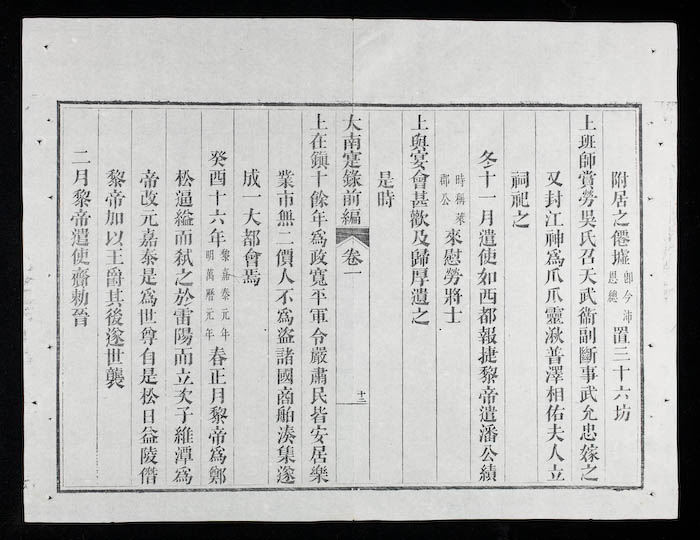 附居之僊墟即今沛恩總置三十六坊
上班師賞勞吳氏召天武衛副斷事武允忠嫁之
又封江神爲爪爪靈湫普澤相佑夫人立
祠祀之
冬十一月遣使如西都報捷黎帝遣潘公績
時稱萊郡公來慰勞將士
上與宴會甚歡及歸厚遺之
是時
大南寔錄前編
卷一
十三
上在鎭十餘年爲政寬平軍令嚴肅民皆安居樂
業市無二價人不爲盜諸國商舶湊集遂
成一大都會焉
癸酉十六年黎嘉泰元年明萬曆元年春正月黎帝爲鄭
松逼縊而弑之於雷陽而立次子維潭爲
帝改元嘉泰是爲世尊自是松日益陵僭
黎帝加以王爵其後遂世襲
二月黎帝遣使齎勅晉